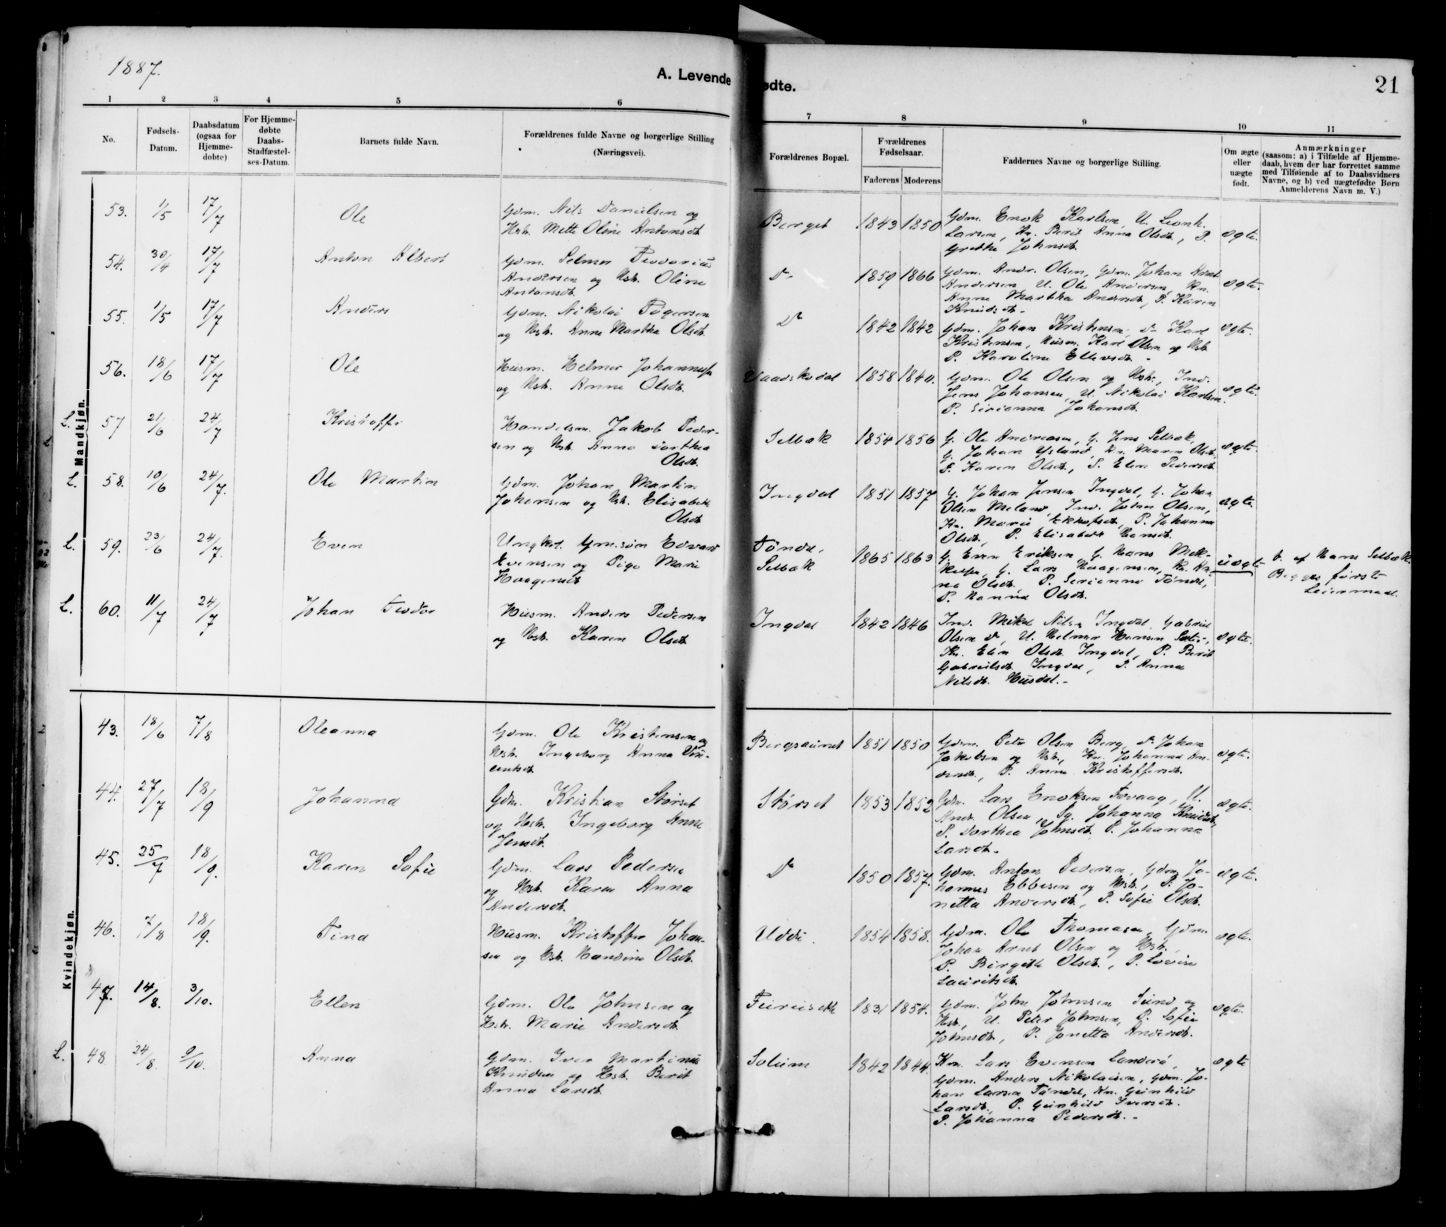 1887.
A. Levende
ødte.
21
1 2 3 4 5 6 7 8 9 10 11
No.
Fødsels-Datum.
Daabsdatum (ogsaa for Hjemme-døbte)
For Hjemme-døbte Daabs-Stadfæstel-ses-Datum.
Barnets fulde Navn.
Forældrenes fulde Navne og borgerlige Stilling (Næringsvei).
Forældrenes Bopæl.
Forældrenes Fødselsaar.
Faderens Moderens
Faddernes Navne og borgerlige Stilling.
Om ægte eller uægte født.
Anmærkninger
(saasom: a) i Tilfælde af Hjemme-
daab, hvem der har forrettet samme
med Tilføiende af to Daabsvidners
Navne, og b) ved uægtefødte Børn
Anmelderens Navn m. V.)
Mandkjøn.
53. 1/5 17/7 Ole
Gdm. Nils Danielsen og
Hst. Mette Oline Antonsdt.
Berget 1843 1850
Gdm. Enok Karlsen, U. Leonh.
Larsen, Kn. Berit Anna Olsdt, P.
Grethe Johnsdt.
ægte.
54. 30/4 17/7 Anton Albert
Gdm. Selmer Teodorius
Andersen og Hst. Oline
Antonsdt.
D- 1859 1866
Gdm. Andr. Olsen, Gdm. Johan
Andersen U. Ole Andersen, Kn.
Anne Martha Andersdt, P. Karen
Knudsdt.
ægte.
55. 1/5 17/7 Anders
Gdm. Nikolai
og Hst. Anne Martha Olsdt.
D 1842 1842
Gdm. Johan Kristensen, d. Karl
Kristensen, Husm. Karl Olsen og Hst.
P. Karoline Ellevsdt.
ægte.
56. 18/6 17/7 Ole
Husm. Helmer Johanness.
og Hst. Anne Olsdt.
1858 1840.
Gdm. Ole Olsen og Hst., Ind.
Jens Johansen, U. Nikolai Karlsen
P. Johansdt.
ægte.
L. 57 21/6 24/7 Kristoffer
Handelsm. Jakob Peder-
sen og Hst. Anna Dorthea
Olsdt.
Selbæk 1854 1856
G. Ole Andreasen, G. Jens Selbæk,
G. Johan Kn. Maren Olsdt
P. Karen Olsdt, P. Elen Pedersdt
ægte.
L. 58. 10/6 24/7. Ole Martin
Gdm. Johan Martin
Johansen og Hst. Elisabeth
Olsdt.
Ingdal 1851 1857
G. Johan Jensen Ingdal, G. Johan
Olsen Meland, Ind. Johan Olsen,
Kn. Marie P. Johanna
Olsdt, P. Elisabeth Hansdt.
ægte.
L. 59. 23/6 24/7 Even
Ungkar Gmsøn Edvard
Evensen og Pige Marie
Haagensdt.
Tøndel
Selbæk 1865 1863
G. Even Eriksen G. Hans Mek-
G. Lars Haagensen, Kn. An-
na Olsdt. P. Serianna Tøndel,
P. Hanna Olsdt.
uægte b. af Hans Selbæk
Begges første
Leiermaal
L. 60. 11/7 24/7 Johan Teodor
Husm. Anders Pedersen
og Hst. Karen Olsdt.
Ingdal 1842 1846
Ind. Mikal Nilsen Ingdal, Gabriel
Olsen d., U. Helmer Hansen
Kn. Elen Olsdt Ingdal, P. Berit
Gabrielsdt. Ingdal, P. Anna
Nilsdt. Husdal.-
ægte.
Kvindekjøn.
43. 18/6 7/8 Oleanna
Gdm. Ole Kristensen og
Hst. Ingeborg Anna
Bergsaunet 1851 1850
Gdm. Peter Olsen Berg d. Johan
Jakobsen og Hst., Kn. Johanna An-
dersdt., P. Anne Kristoffersdt.
ægte.
44. 27/7 18/9 Johanna
Gdm. Kristian Størset
og Hst. Ingeborg Anne
Jensdt.
Størset 1853 1852
Gdm. Lars Enoksen Tovaag, U.
And. Olsen Johanna
P. Dorthea Johnsdt P. Johanna
Larsdt.
ægte.
45. 25/7 18/9. Karen Sofie
Gdm. Lars Pedersen
og Hst. Karen Anna
Andersdt.
D 1850 1857.
Gdm. Anton Pedersen, Gdm Jo-
hannes Ebbesen og Hst., P. Jo-
netta Andersdt, P. Sofie Olsdt.
ægte.
46. 7/8 18/9. Tina
Husm. Kristoffer Johan-
sen og Hst. Handine Olsdt.
Uddi. 1854 1858.
Gdm. Ole Thomasen, Gdm.
Johan Arnt Olsen og Hst.
P. Birgitte Olsdt, P. Lovise
Lauritsdt.
ægte.
47. 14/8. 3/10. Ellen
Gdm. Ole Johnsen og
Hst. Marie Andersdt.
1831 1854.
Gdm. John Johnsen og
Hst, U. Peter Johnsen, P. Sofie
Johnsdt, P. Jonetta Andersdt.
ægte.
L. 48 24/8. 9/10. Anna
Gdm. Iver Martinus
Knudsen og Hst. Berit
Anna Larsdt.
Solum 1842 1844.
Km. Lars Evensen
Gdm. Anders Nikolaisen, Gdm. Jo-
han Larsen Tøndel, Kn. Gunhild
Larsdt, P. Gunhild Iversdt.
P. Johanna Pedersdt.-
ægte